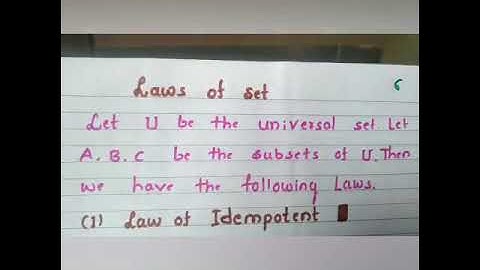 Laws of set 6
Let U be the universal set Let
A.B.C be the subsets of U.Then
we have the following Laws.
(1) Law of Idempotent